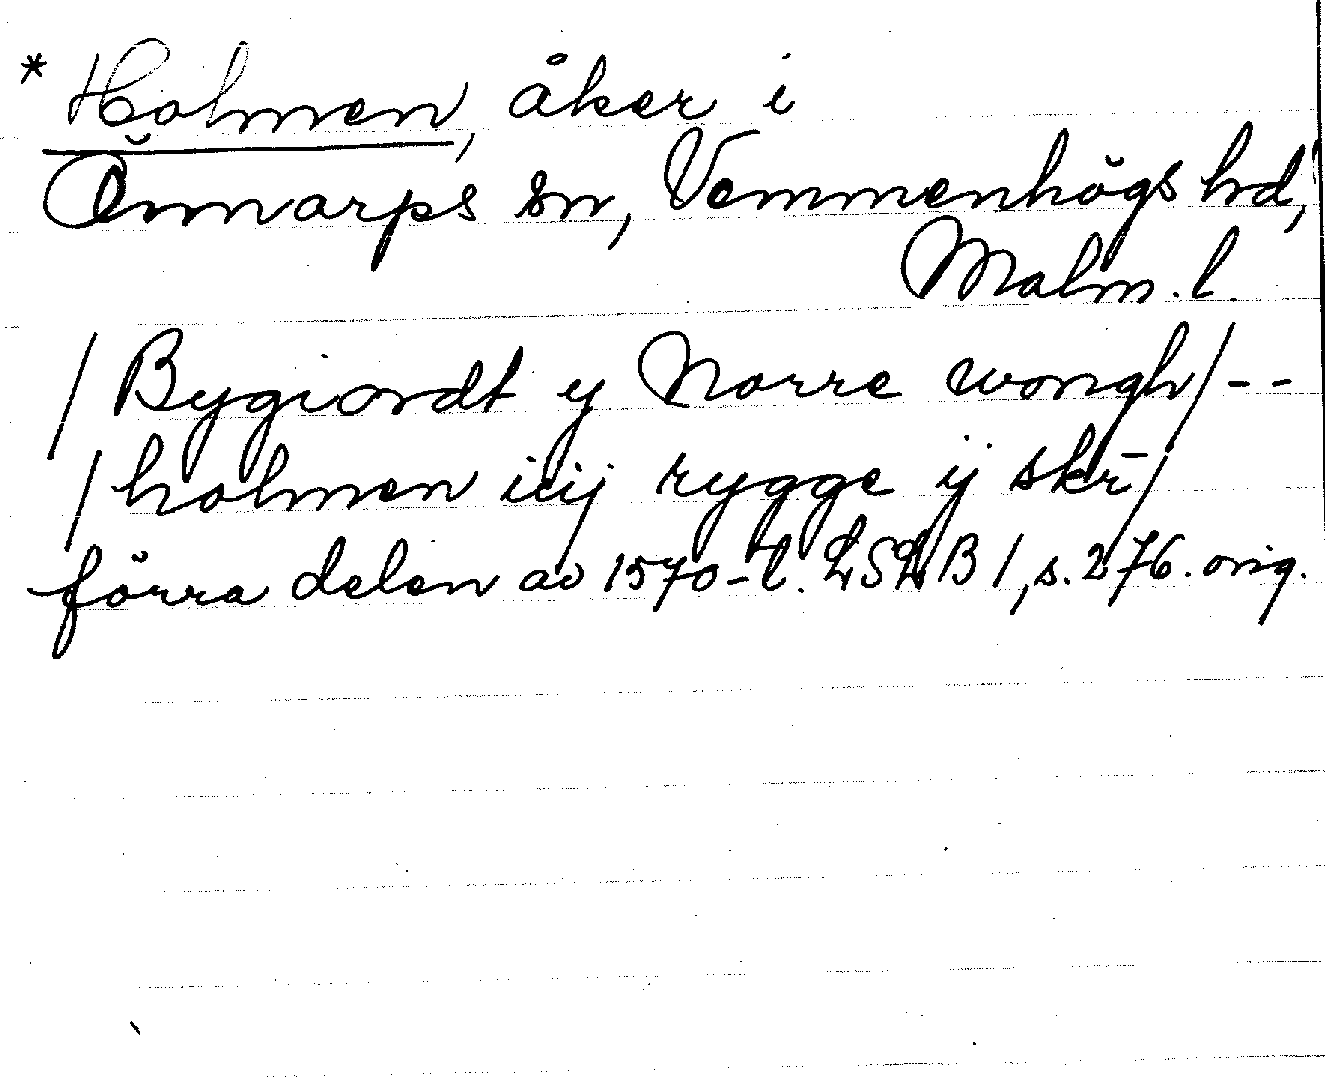 * Holmen, åker i
Önnarps sn, Vemmenhögs hd,
Malm. l.
/Bygiordt y Norre wongh/--
/holmen iiij rygge ij skr̄/
förra delen av 1570-t. LSLB 1, s. 276. orig.